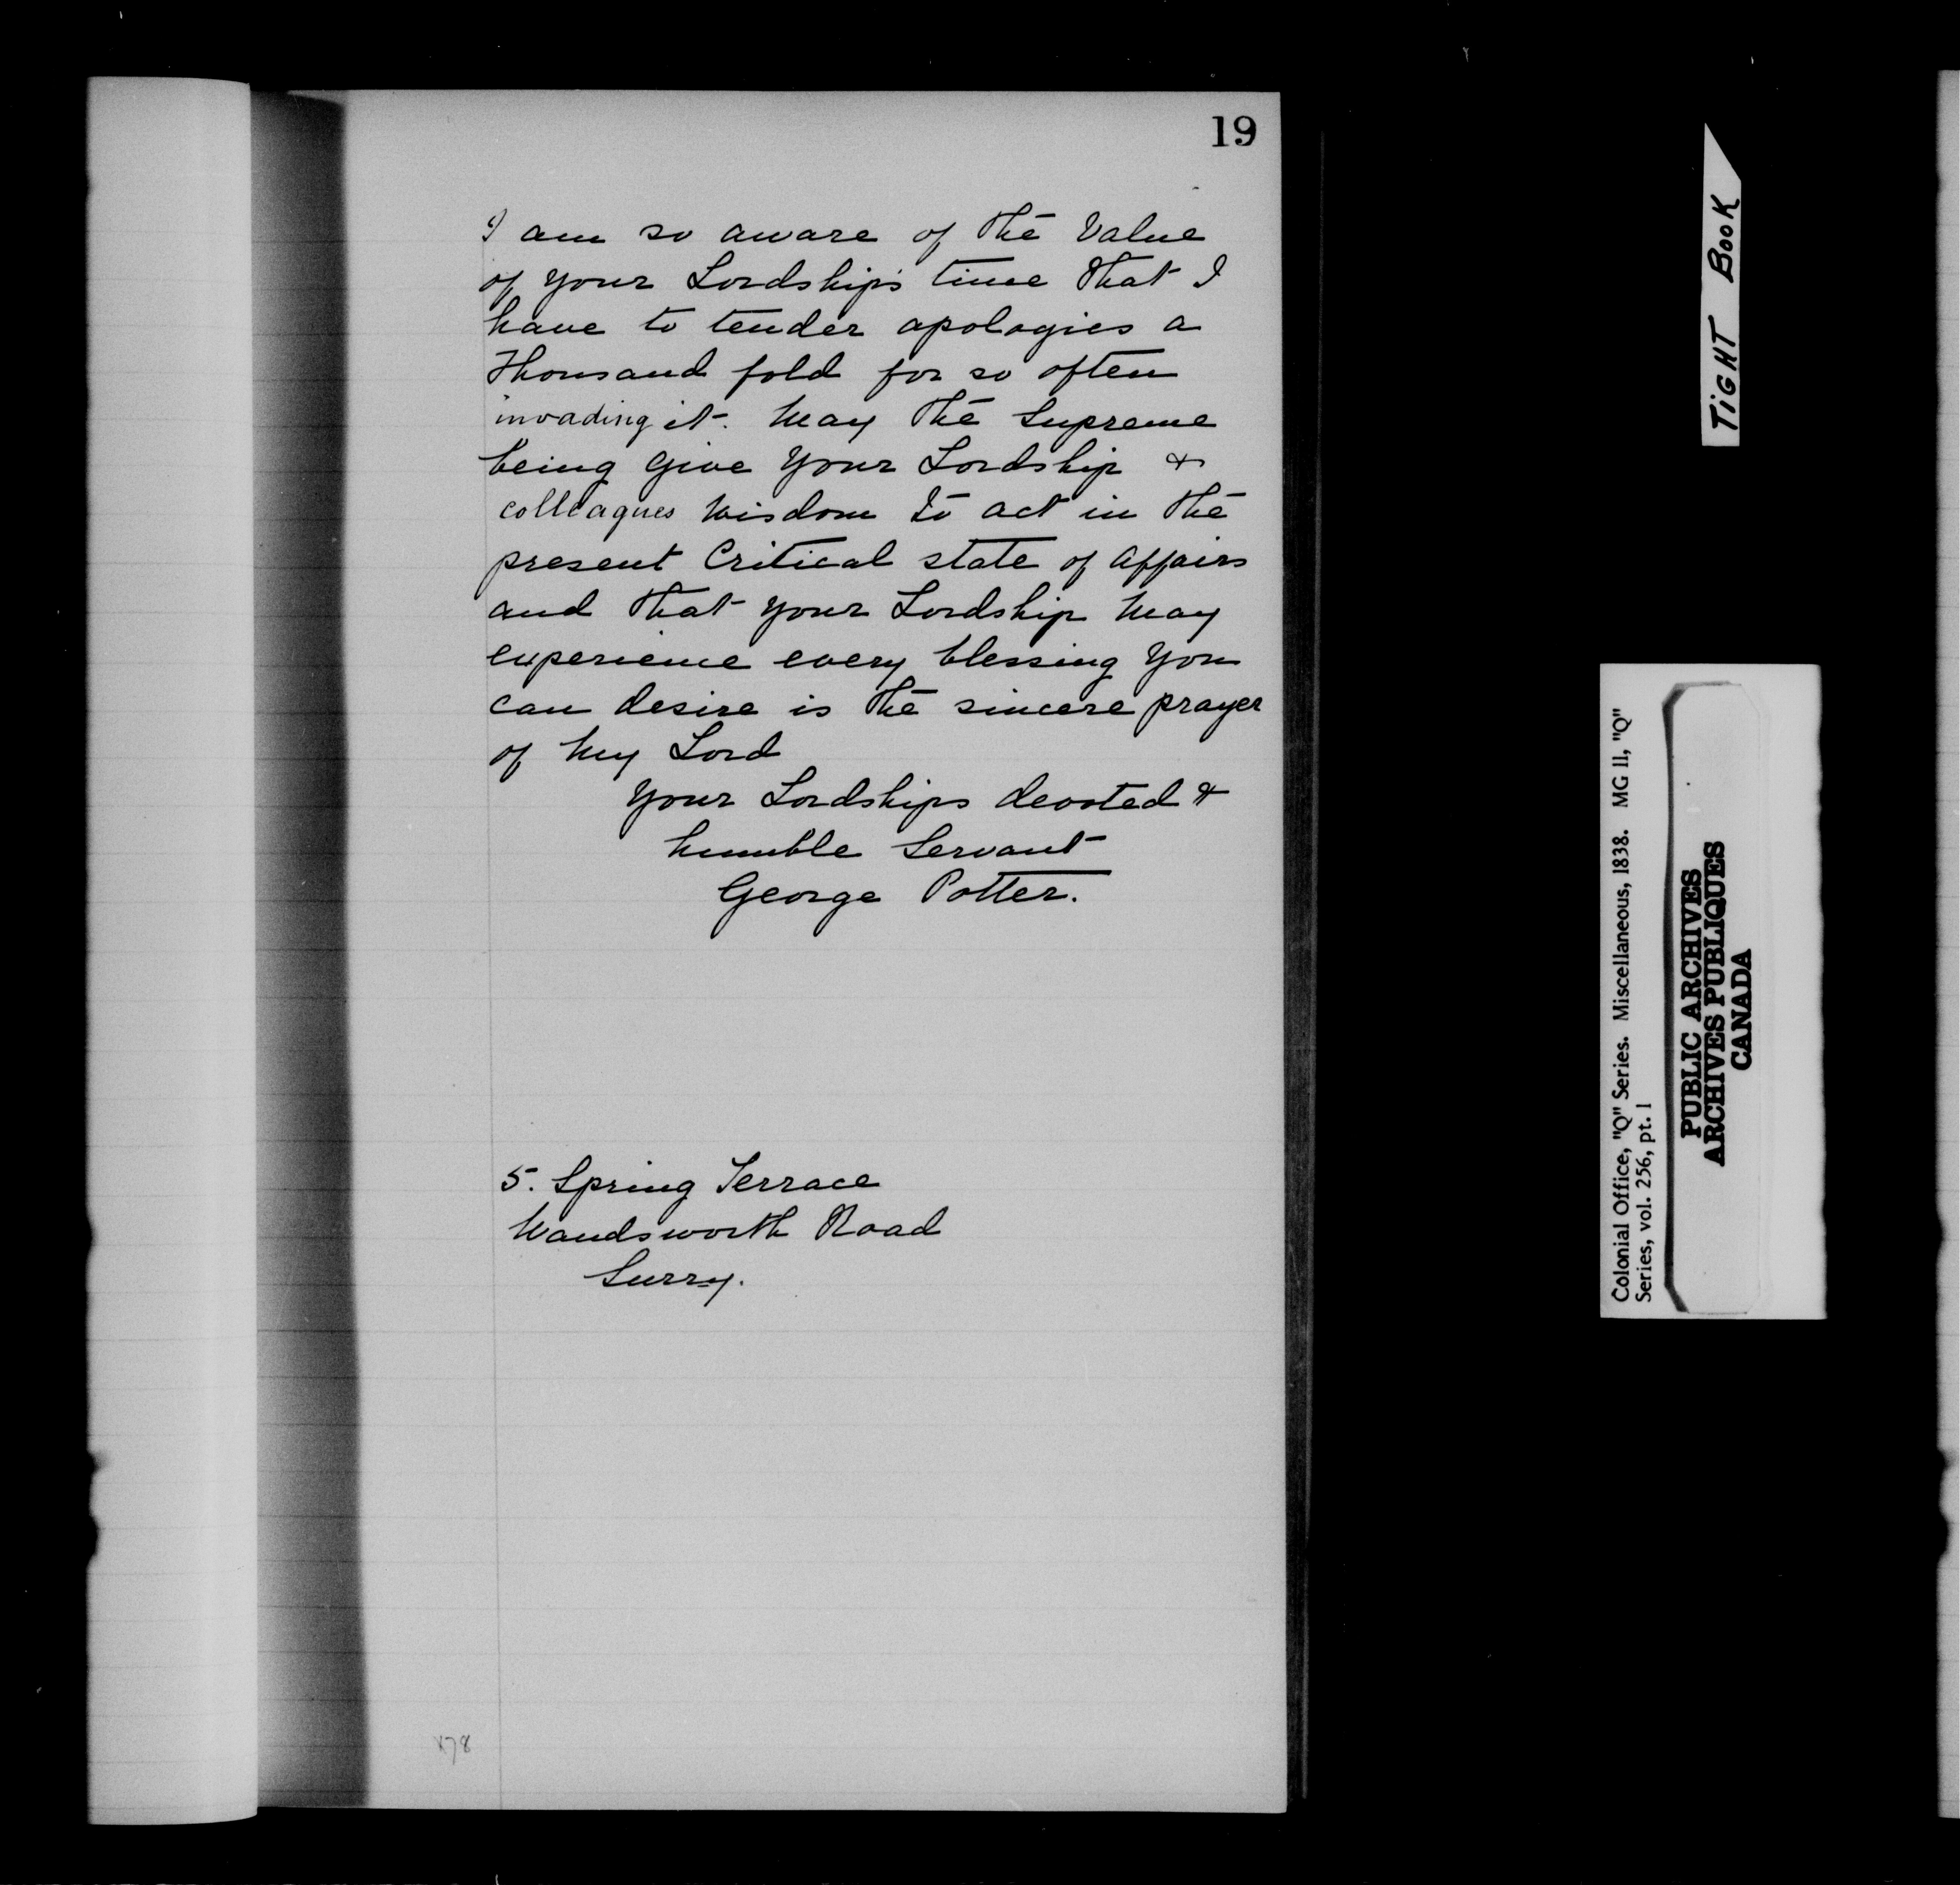 19
I am so aware of the Value
of your Lordship's time that I
have to tender apologies a
Thousand fold for so often
invading it. May the Supreme
being give your Lordship &
colleagues Wisdom to act in the
present Critical state of affairs
and that your Lordship may
experience every blessing you
can desire is the sincere prayer
of my Lord
Your Lordships devoted &
humble Servant
George Potter.
5. Spring Terrace
Wandsworth Road
Surry.
x78
TiGHT BOOK
Colonial Office, "Q" Series. Miscellaneous, 1838. MG 11, "Q"
Series, vol. 256, pt. 1
PUBLIC ARCHIVES
ARCHIVES PUBLIQUES
CANADA